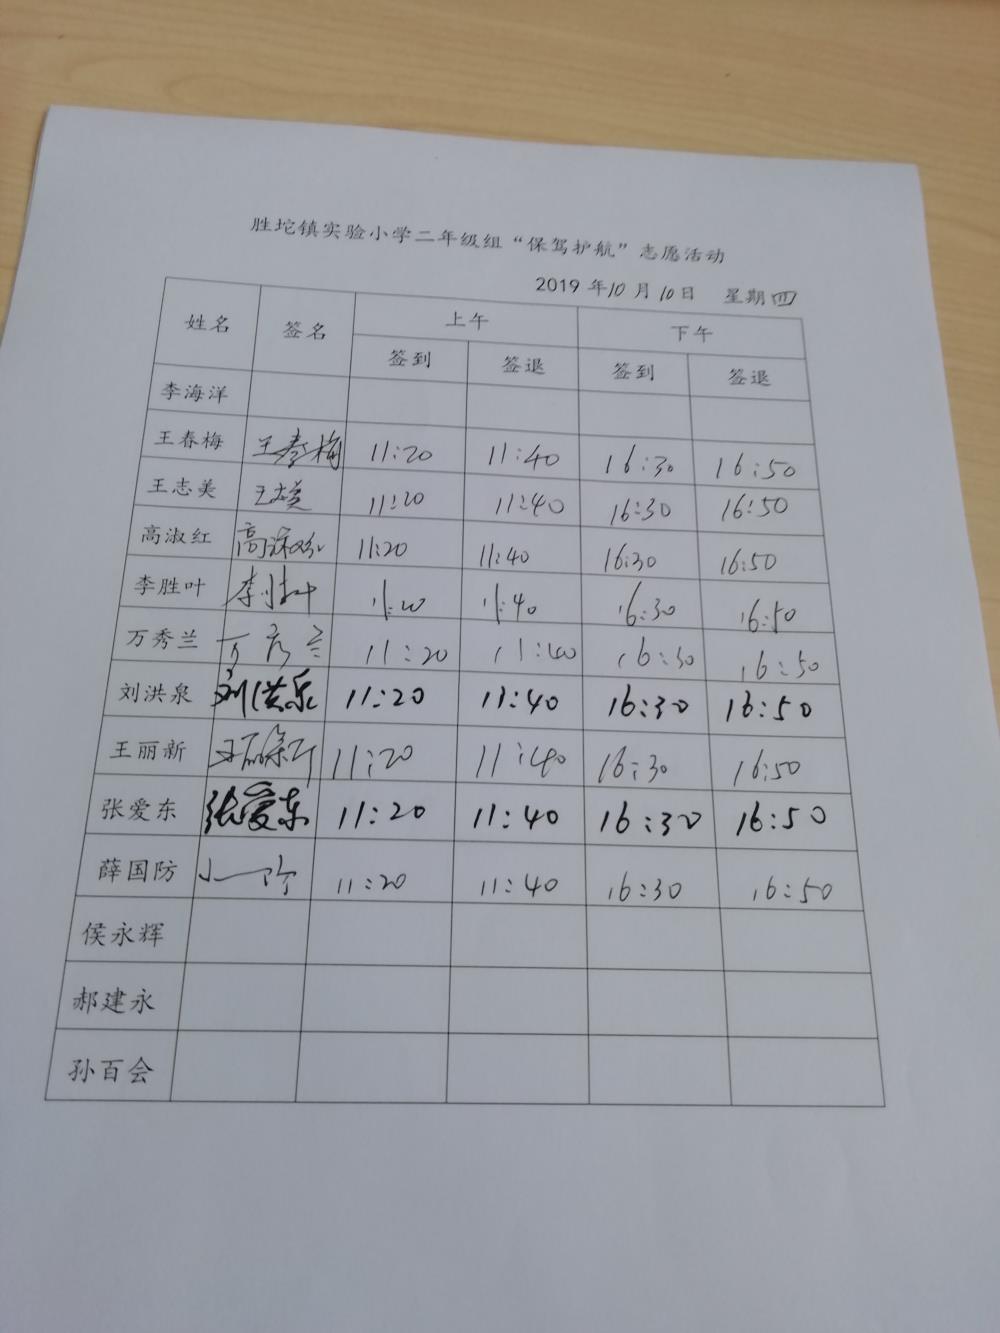 胜坨镇实验小学二年级组“保驾护航”志愿活动
2019 年10月10日 星期四
姓名 签名 上午 下午
签到 签退 签到 签退
李海洋
王春梅 王春梅 11:20 11:40 16:30 16:50
王志美 11:20 11:40 16:30 16:50
高淑红 11:20 11:40 16:30 16:50
李胜叶 李胜叶 11:20 11:40 16:30 16:50
万秀兰 万秀兰 11:20 11:40 16:30 16:50
刘洪泉 刘洪泉 11:20 11:40 16:30 16:50
王丽新 王丽新 11:20 11:40 16:30 16:50
张爱东 张爱东 11:20 11:40 16:30 16:50
薛国防 11:20 11:40 16:30 16:50
侯永辉
郝建永
孙百会